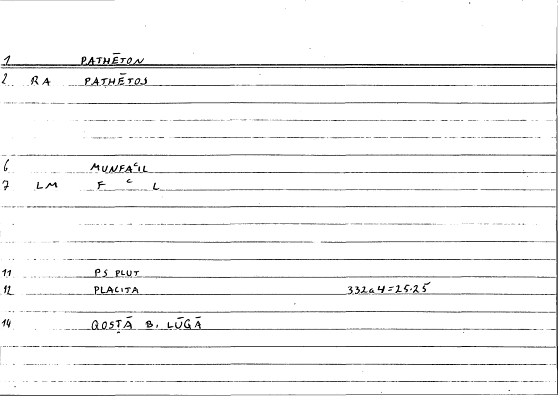 1 PATHĒTON
2 RA PATHĒTOS
6 MUNFAʿIL
7 LM F ʿ L
11 PS PLUT
12 PLACITA 332a4=25.25
14 QOSṬĀ B. LŪGĀ